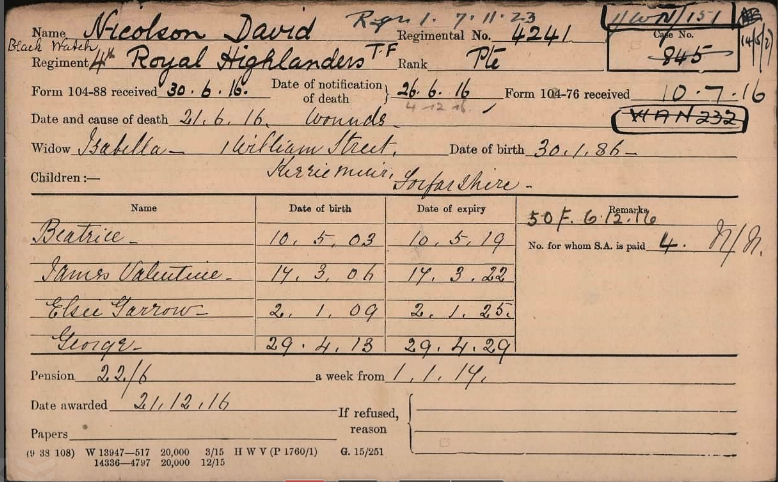 Regr 1. 7.11.23
11WN/151
Name Nicolson David Regimental No. 4241 Case No. 845
Black Watch
Regiment 4th Royal Highlanders T.F Rank Pte
Form 104-88 received 30.6.16. Date of notification of death } 26.6.16 Form 104-76 received 10.7.16
4.12.16.
Date and cause of death 21.6.16. Wounds. WAN 232
Widow Isabella 1 William Street, Date of birth 30.1.86
Children:— Kirriemuir, Forfarshire
Name Date of birth Date of expiry Remarks
50F. 6.12.16
Beatrice 10.5.03 10.5.19 No. for whom S.A. is paid 4. N/N.
James Valentine 17.3.06 17.3.22
Elsie Garrow 2.1.09 2.1.25.
George 29.4.13 29.4.29
Pension 22/6 a week from 1.1.17.
Date awarded 21.12.16 If refused, reason
Papers
(9 38 108) W 13947—517 20,000 3/15 H W V (P 1760/1) G. 15/251
14336—4797 20,000 12/15